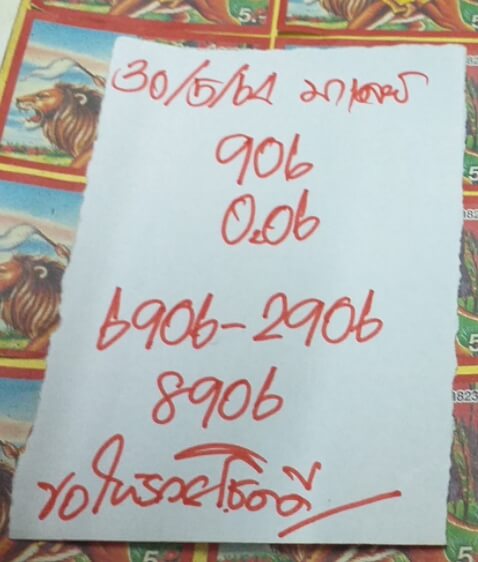 30/5/64 มาเลย์
906
0.06
6906-2906
8906
ขอให้รวยโชคดี
5.-
5
823
5
823
5
5